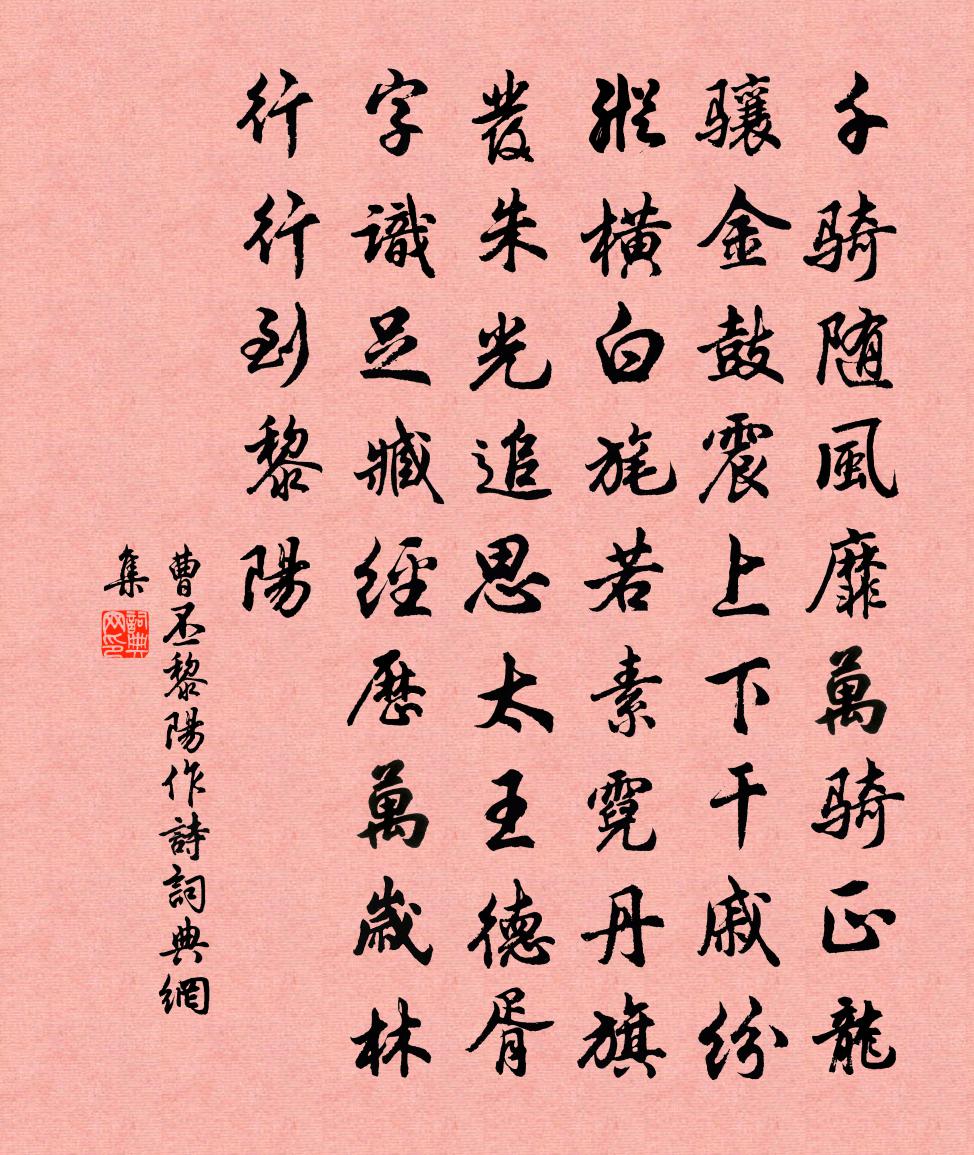 千騎随風靡萬騎正龍
驤金鼓震上下干戚紛
縱橫白旄若素霓丹旗
發朱光追思太王德胥
字識足臧經歷萬歲林
行行到黎陽
曹丕黎陽作詩詞典網
集
詞典網印